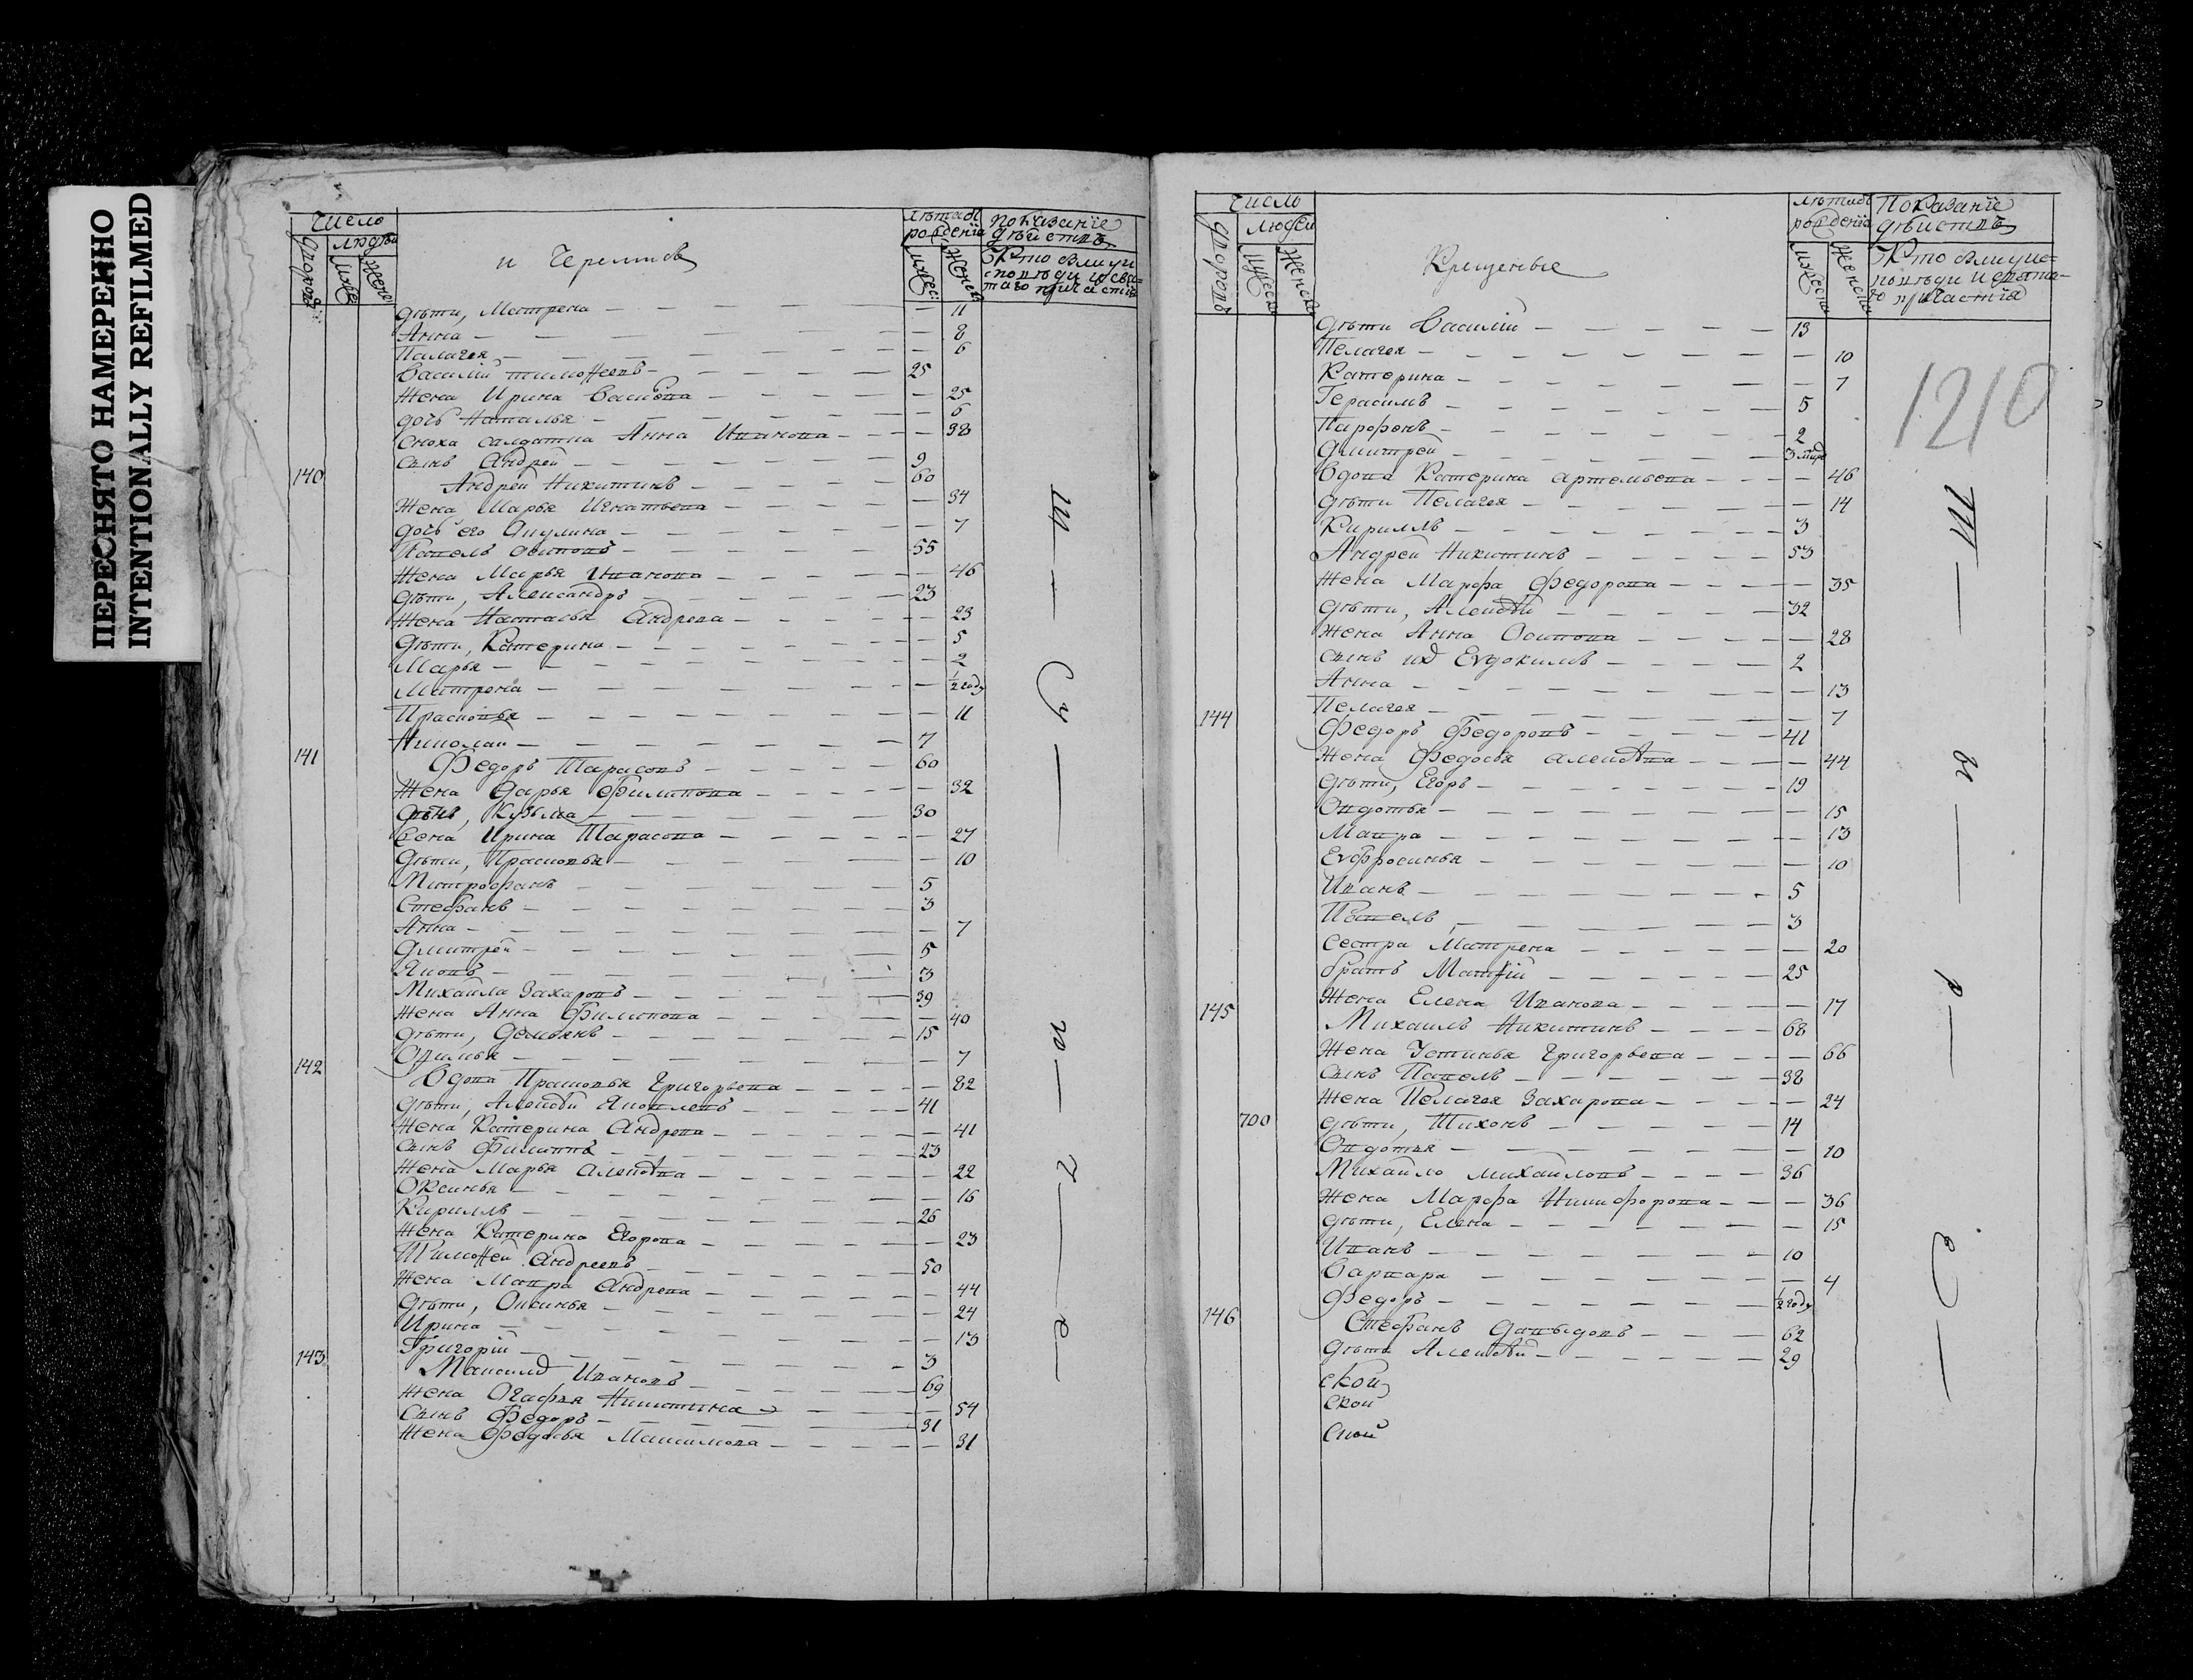 ПЕРЕСНЯТО НАМЕРЕННО
INTENTIONALLY REFILMED
Число
людей
и Черемисъ
лѣта от рождения
показание дѣйствъ
Кто были у исповѣди и святаго причастия
дѣти, Матрена — 11
Анна — 8
Палагея — 6
Василий Тимоѳеевъ — 25
Жена Ирина Васильева — 25
дочь Наталья — 6
Сноха салдатка Анна Иванова — 38
сынъ Андрей — 9
140 Андрей Никитинъ — 60
Жена Марья Игнатьева — 34
дочь его Акулина — 7
Павелъ Осиповъ — 55
Жена Марья Иванова — 46
дѣти, Александръ — 23
Жена Настасья Андреева — 23
дѣти, Катерина — 5
Марья — 2
Матрена — 1/2 году
Прасковья — 11
Николай — 7
141 Федоръ Тарасовъ — 60
Жена Дарья Филипова — 32
сынъ, Кузьма — 30
Жена Ирина Тарасова — 27
дѣти, Прасковья — 10
Митрофанъ — 5
Стефанъ — 3
Анна — 7
Дмитрей — 5
Яковъ — 3
Михайла Захаровъ — 39
Жена Анна Филипова — 40
дѣти, Демьянъ — 15
142 — 7
Вдова Прасковья Григорьева — 82
дѣти, Алексѣй Яковлевъ — 41
Жена Катерина Андрева — 41
сынъ Филиппъ — 23
Жена Марья Алексѣева — 22
Оксинья — 16
Кириллъ — 26
Жена Катерина Егорова — 23
Тимоѳей Андреевъ — 50
Жена Мавра Андрева — 44
дѣти, Оксинья — 24
Ирина — 13
Григорий — 3
143 Максимъ Ивановъ — 69
Жена Огафья Никитина — 54
Сынъ Федоръ — 31
Жена Федосья Максимова — 31
Число
людей
Крещеные
лѣта от рождения
Показание дѣйствъ
Кто были у исповѣди и святаго причастия
1210
дѣти Василий — 13
Пелагея — 10
Катерина — 7
Герасимъ — 5
Парфенъ — 2
Дмитрей — 3
Вдова Катерина Артемьева — 46
дѣти Пелагея — 14
Кириллъ — 3
Андрей Никитинъ — 53
Жена Марфа Федорова — 35
дѣти, Алексѣй — 32
Жена Анна Осипова — 28
сынъ их Евдокимъ — 2
Анна — 13
Пелагея — 7
144 Федоръ Федоровъ — 41
Жена Федосья Алексѣва — 44
дѣти, Егоръ — 19
Овдотья — 15
Мавра — 13
Евфросинья — 10
Иванъ — 5
Павелъ — 3
Сестра Матрена — 20
братъ Матѳѣй — 25
Жена Елена Иванова — 17
145 Михаилъ Никитинъ — 68
Жена Устинья Григорьева — 66
сынъ Павелъ — 38
Жена Пелагея Захарова — 24
700 дѣти, Тихонъ — 14
Овдотья — 10
Михайло Михайловъ — 36
Жена Марфа Никифорова — 36
дѣти, Елена — 15
Иванъ — 10
Варвара — 4
Федоръ — 1/2 году
146 Стефанъ Давыдовъ — 62
дѣти Алексѣй — 29
ской
ской
ской